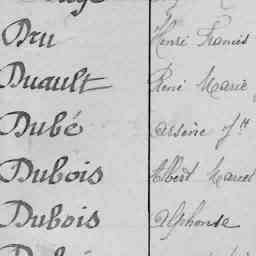 Dru Henri Francis
Duault René Marie
Dubé Arsène Jh
Dubois Albert Marcel
Dubois Alphonse